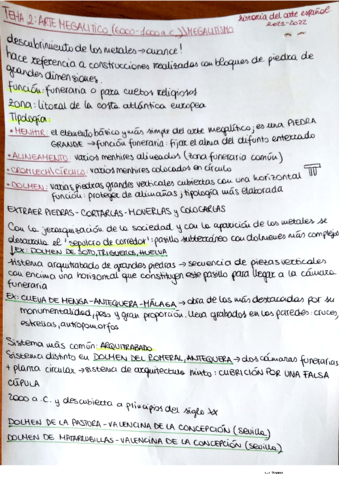 TEMA 2: ARTE MEGALÍTICO (6000-1000 a.C.) MEGALITISMO
historia del arte español
2021-2022
descubrimiento de los metales → avance!
hace referencia a construcciones realizadas con bloques de piedra de
grandes dimensiones.
función: funeraria o para cultos religiosos
zona: litoral de la costa atlántica europea
Tipología
• MENHIR: el elemento básico y más simple del arte megalítico, es una PIEDRA
GRANDE → función funeraria: fijar el alma del difunto enterrado
• ALINEAMIENTO: varios menhires alineados (zona funeraria común)
• CROMLECH/CÍRCULO: varios menhires colocados en círculo
• DOLMEN: varias piedras grandes verticales cubiertas con una horizontal
función: proteger de alimañas, tipología más elaborada
EXTRAER PIEDRAS - CORTARLAS - MOVERLAS y COLOCARLAS
Con la jerarquización de la sociedad y con la aparición de los metales se
desarrolla el 'sepulcro de corredor': pasillo subterráneo con dólmenes más complejos
EX: DOLMEN DE SOTO, TRIGUEROS, HUELVA
→ sistema arquitrabado de grandes piedras → secuencia de piezas verticales
con encima una horizontal que constituyen este pasillo para llegar a la cámara
funeraria
EX: CUEVA DE MENGA - ANTEQUERA - MÁLAGA → obra de las más destacadas por su
monumentalidad, peso y gran proporción. lleva grabados en las paredes: cruces,
estrellas, antropomorfos
Sistema más común: ARQUITRABADO
Sistema distinto en DOLMEN DEL ROMERAL, ANTEQUERA → dos cámaras funerarias
+ planta circular → sistema de arquitectura mixto: CUBRICIÓN POR UNA FALSA
CÚPULA
2000 a.C. y descubierta a principios del siglo XX
DOLMEN DE LA PASTORA - VALENCINA DE LA CONCEPCIÓN (Sevilla)
DOLMEN DE MATARRUBILLAS - VALENCINA DE LA CONCEPCIÓN (Sevilla)